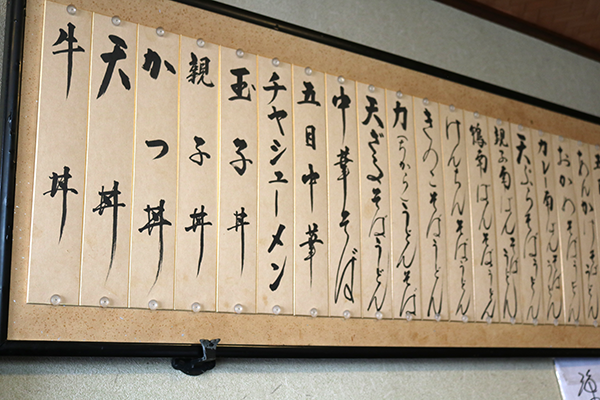 あんかけそば
おかめそばうどん
カレー南ばんそばうどん
天ぷらそばうどん
親子南ばんそばうどん
鴨南ばんそばうどん
けんちんそばうどん
きのこそばうどん
力(ちから)うどんそば
天ざるそばうどん
中華そば
五目中華
チャシューメン
玉子丼
親子丼
かつ丼
天丼
牛丼